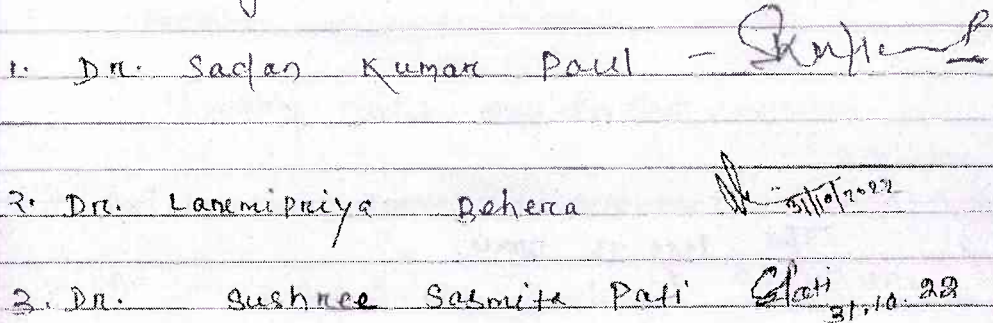 1. Dr. Sadan Kumar Paul -
2. Dr. Laxmipriya Behera 31/10/2022
3. Dr. Sushree Sasmita Pati SPati 31.10.22